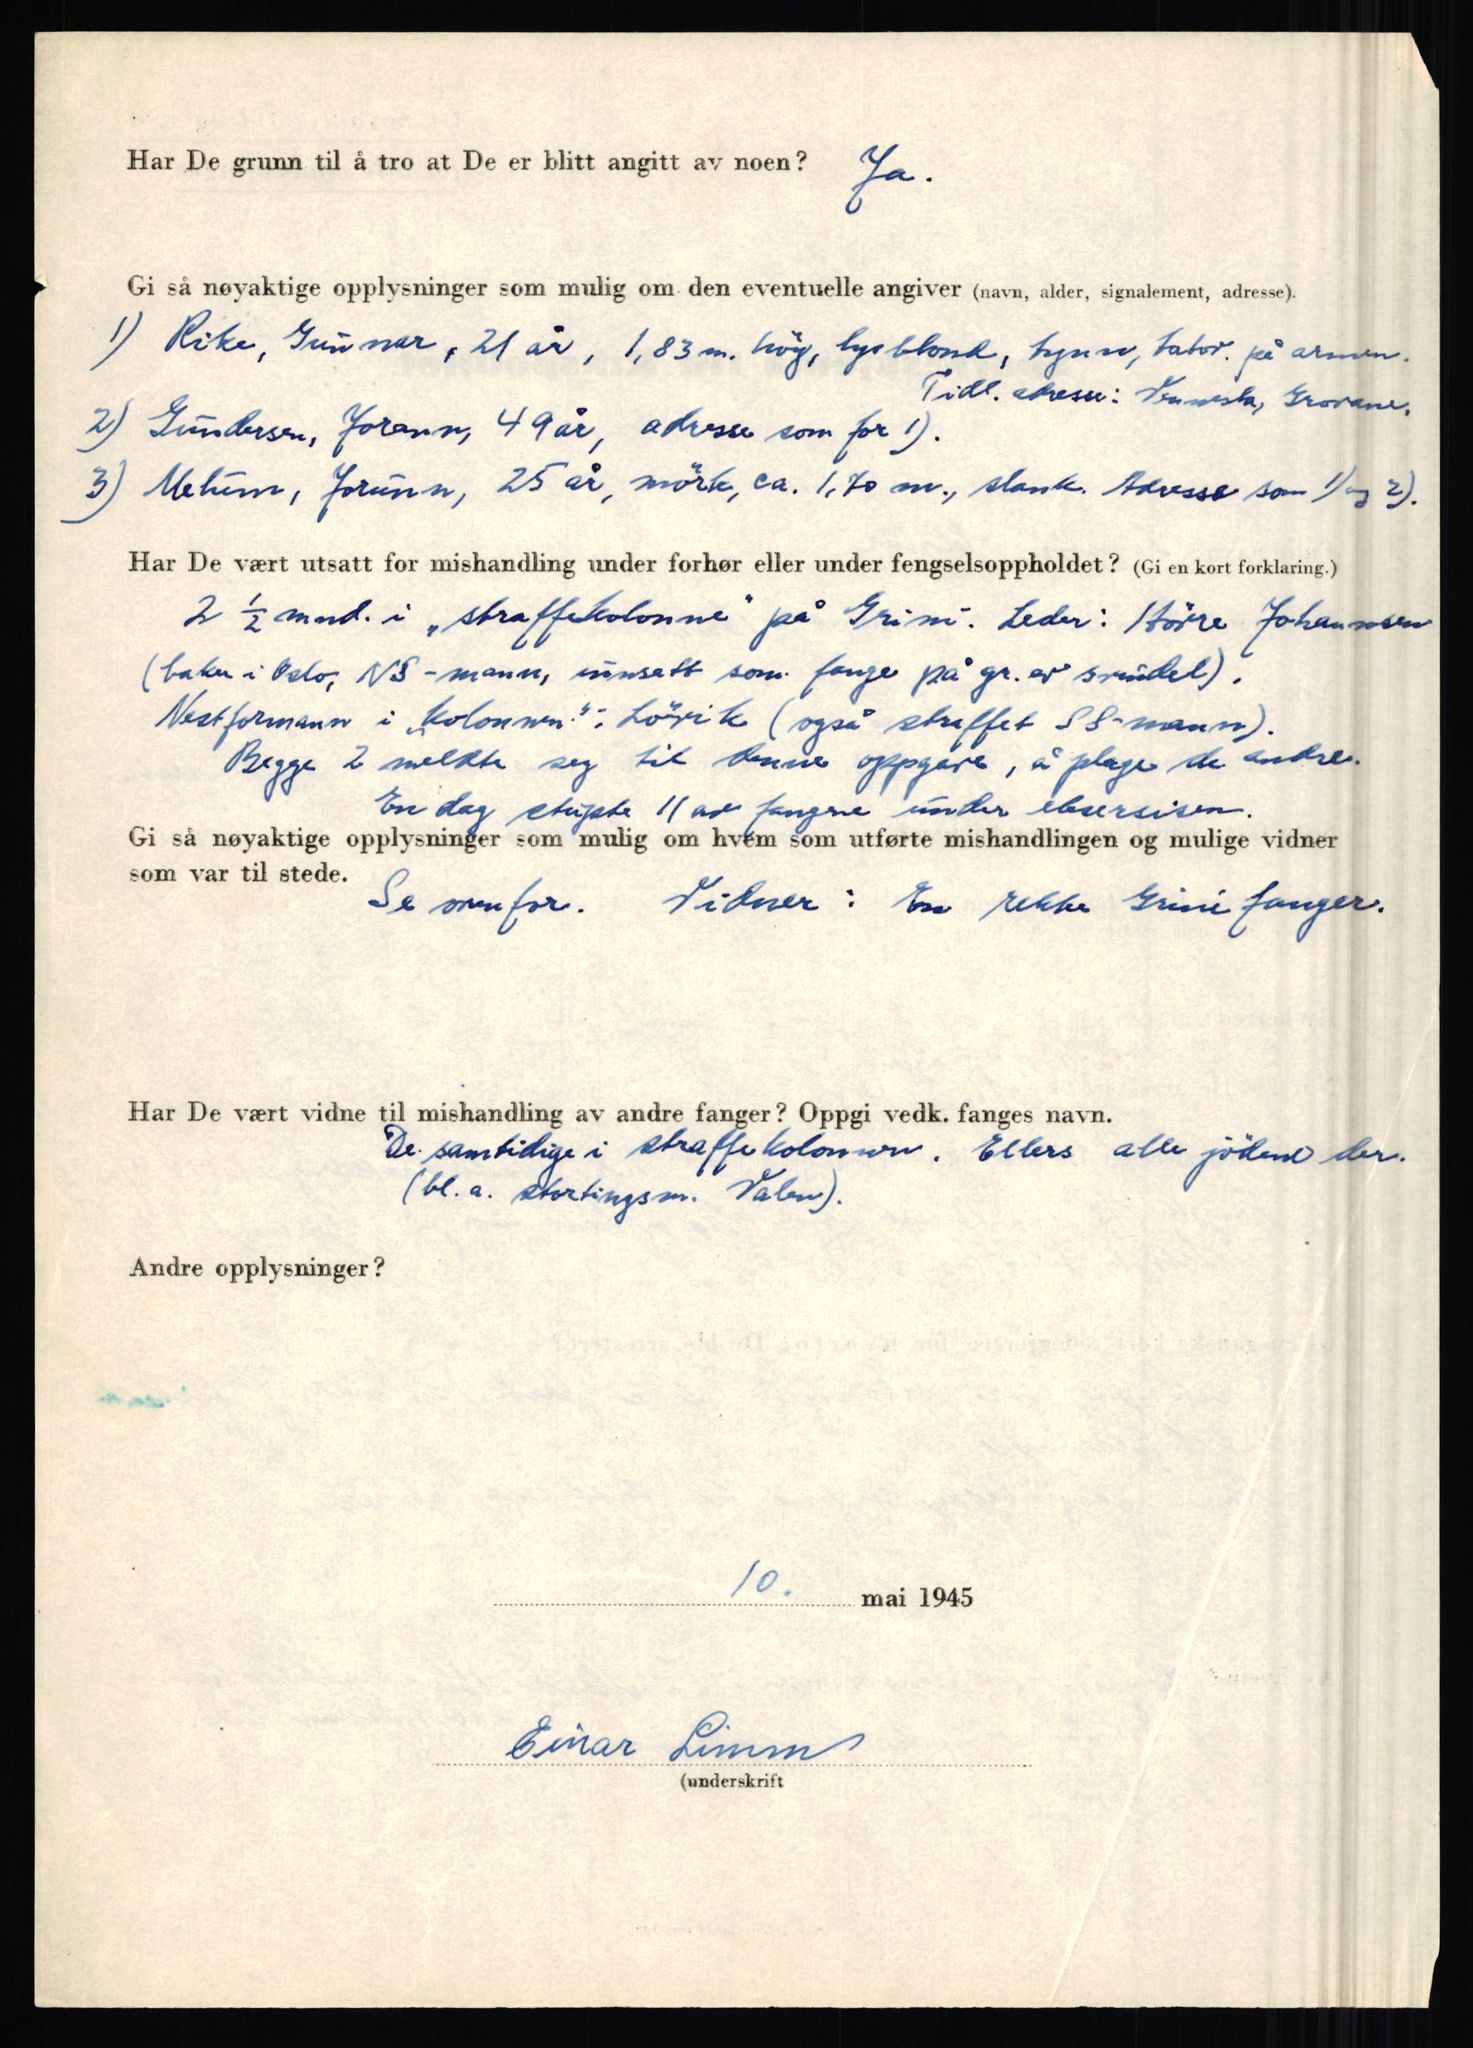 Har De grunn til å tro at De er blitt angitt av noen? Ja.
Gi så nøyaktige opplysninger som mulig om den eventuelle angiver (navn, alder, signalement, adresse).
1) Rike, Gunnar, 21 år, 1,83 m. høy, lysblond, tynn, tator. på armen.
Tidl. adresse: Vennesla, Grovane.
2) Gundersen, 49 år, adresse som for 1).
3) Mehum, Jorunn, 25 år, mörk, ca. 1,70 m., slank. Adresse som 1) og 2).
Har De vært utsatt for mishandling under forhør eller under fengselsoppholdet? (Gi en kort forklaring.)
2 1/2 mnd. i „straffekolonne" på Grini. Leder: Johannsen
(baker i Oslo, NS-mann, innsatt som fange på gr. av svindel).
Nestformann i „kolonnen": Lövik (også straffet SS-mann).
Begge 2 meldte seg til denne oppgave, å plage de andre.
En dag stupte 11 av fangene under eksersisen.
Gi så nøyaktige opplysninger som mulig om hvem som utførte mishandlingen og mulige vidner
som var til stede.
Se ovenfor. Vidner: En rekke Grinifanger.
Har De vært vidne til mishandling av andre fanger? Oppgi vedk. fanges navn.
De samtidige i straffekolonnen. Ellers alle jödene der.
(bl. a. stortingsm. Valen).
Andre opplysninger?
10. mai 1945
Einar Limm
(underskrift